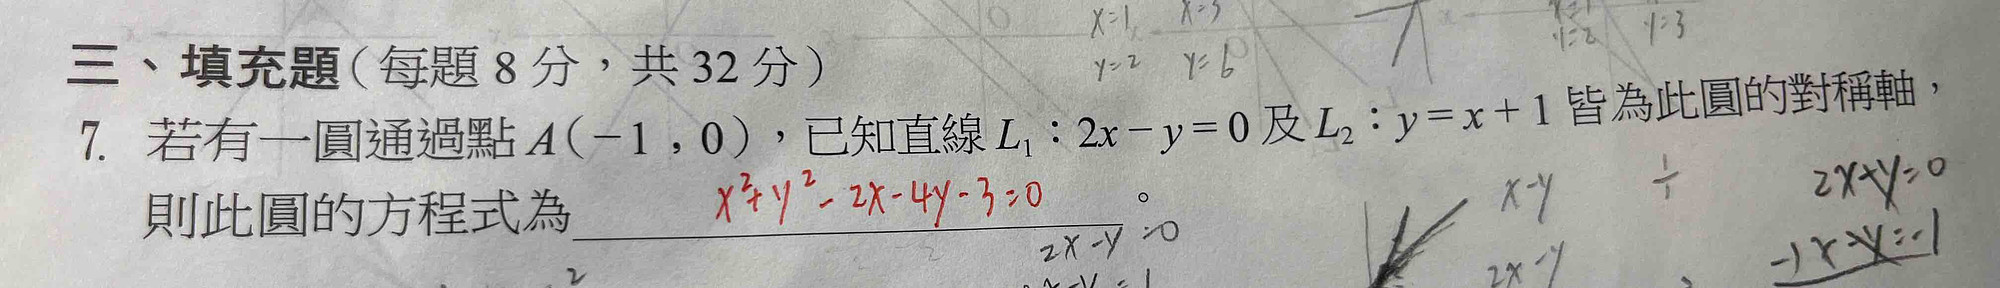 x=1 x=3
y=2 y=6
y=2 y=3
三、填充題(每題 8 分,共 32 分)
7. 若有一圓通過點 A(−1,0),已知直線 L₁:2x−y=0 及 L₂:y=x+1 皆為此圓的對稱軸,
則此圓的方程式為 x²+y²-2x-4y-3=0 。
x-y
2x+y=0
2x-y=0
2x-y
-) x-y=-1
2